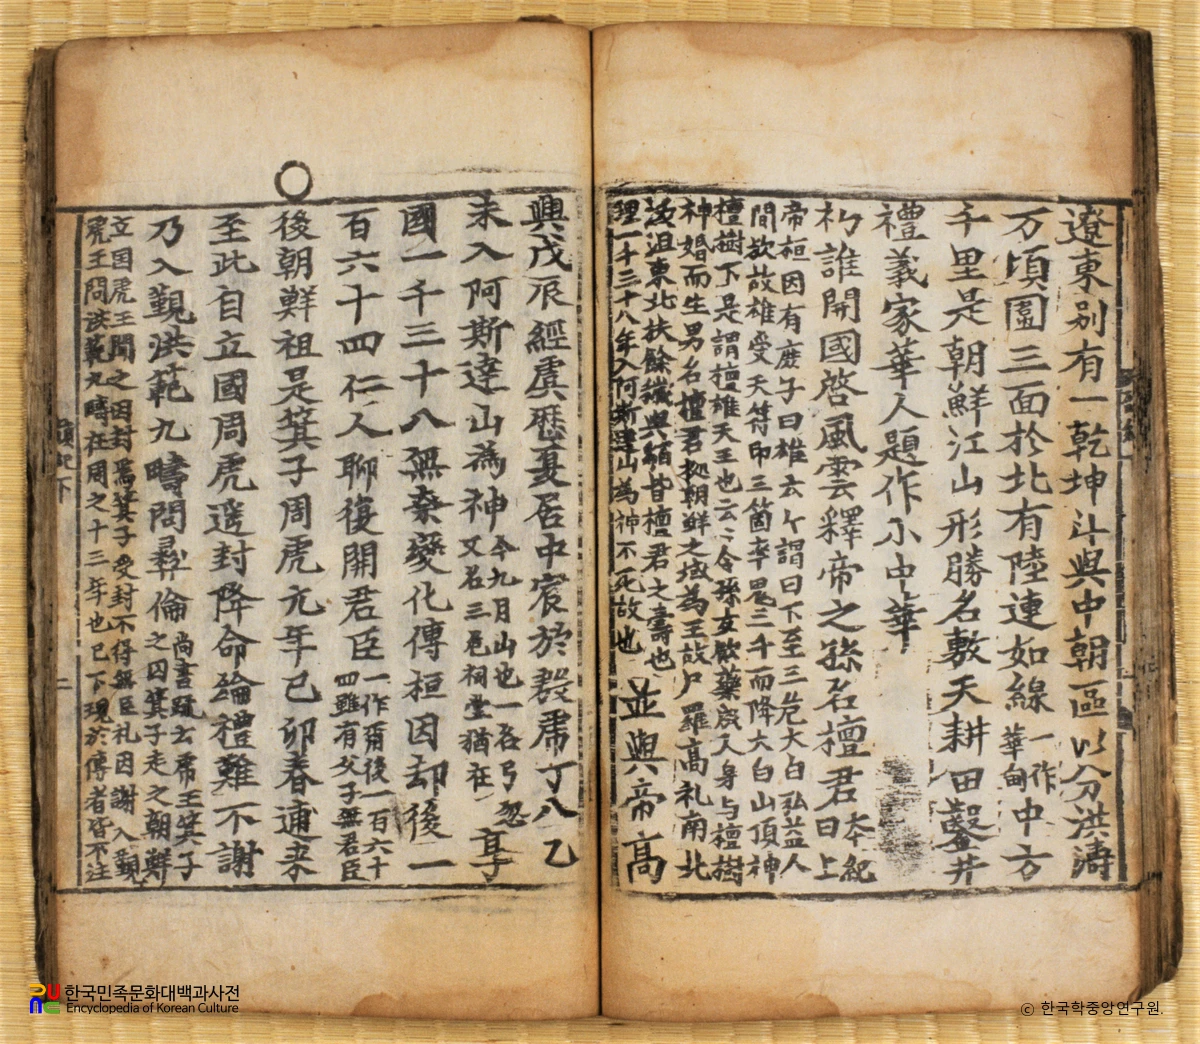 遼東別有一乾坤斗與中朝區以分洪濤
万頃圍三面於北有陸連如線一作華甸中方
千里是朝鮮江山形勝名敷天耕田鑿井
禮義家華人題作小中華
初誰開國啓風雲釋帝之孫名檀君本紀曰上
帝桓因有庶子曰雄云々謂曰下至三危大白弘益人
間欤故雄受天符印三箇率鬼三千而降大白山頂神
檀樹下是謂檀雄天王也云云令孫女飮藥成人身与檀樹
神婚而生男名檀君據朝鮮之域為王故尸羅高礼南北
沃沮東北扶餘穢與貊皆檀君之壽也
理一千三十八年入阿斯達山為神不死故也並與帝高
興戊辰經虞歷夏居中宸於殷虎丁八乙
未入阿斯達山為神今九月山也一名弓忽又名三危祠堂猶在享
國一千三十八無奈變化傳桓因却後一
百六十四仁人聊復開君臣一作爾後一百六十四雖有父子無君臣
後朝鮮祖是箕子周虎元年己卯春逋来
至此自立國周虎遥封降命綸禮難不謝
乃入覲洪範九疇問彝倫尚書疏云虎王箕子之囚箕子走之朝鮮
立国虎王聞之因封焉箕子受封不得無臣礼因謝入覲
虎王問洪範九疇在周之十三年也已下現於傳者皆不注
下
二
한국민족문화대백과사전
Encyclopedia of Korean Culture
ⓒ 한국학중앙연구원.